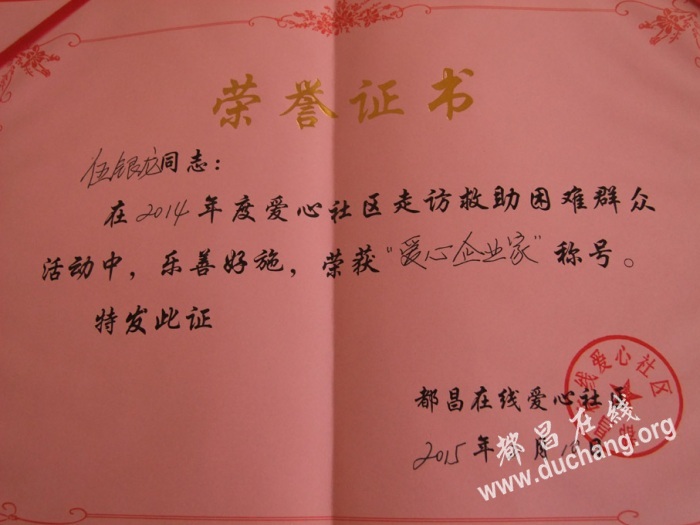 荣誉证书
伍银龙同志：
在2014年度爱心社区走访救助困难群众
活动中，乐善好施，荣获“爱心企业家”称号。
特发此证
都昌在线爱心社区
2015年 月18日
都昌在线爱心社区
都昌在线
www.duchang.org